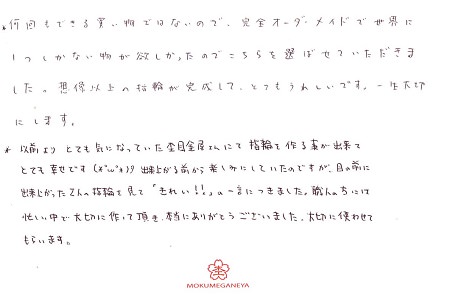 *何回もできる買い物ではないので、完全オーダーメイドで世界に
1つしかない物が欲しかったのでこちらを選ばせていただきま
した。想像以上の指輪が完成して、とてもうれしいです。一生大切
にします。
* 以前より とても気になっていた杢目金屋さんにて 指輪を作る事が出来て
とても幸せです(*'ω'*)出来上がる前から楽しみにしていたのですが、目の前に
出来上がった2人の指輪を見て「きれい!!」の一言につきました。職人の方には
忙しい中で大切に作って頂き、本当にありがとうございました。大切に使わせて
もらいます。
MOKUMEGANEYA